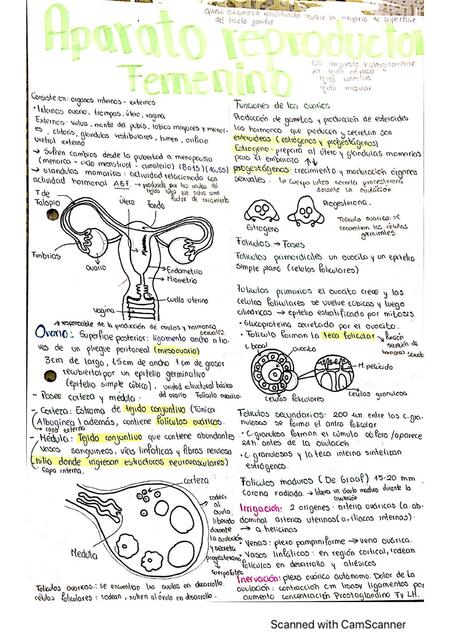 Aparato reproductor
Femenino
Consiste en: órganos internos - externos
• Internos ovario, trompas, útero, vagina
Externos: vulva, monte del pubis, labios mayores y menor-
es, clítoris, glándulas vestibulares, himen, orificio
uretral externo
→ Sufren cambios desde la pubertad a menopausia
→ Glándulas mamarias: actividad relacionada con
actividad hormonal
T de
Falopio
Útero
Fondo
Fimbrias
Ovario
Endometrio
Miometrio
Cuello uterino
vagina
responsable de la producción de óvulos y hormonas
Ovario: Superficie posterior: ligamento ancho a tra-
vés de un pliegue peritoneal (mesovario)
3cm de largo, 1.5cm de ancho 1cm de grosor
recubiertos por un epitelio germinativo
(epitelio simple cúbico). unidad estructural básica
del ovario: Folículo ovárico
- Posee corteza y médula:
- Corteza: Estroma de tejido conjuntivo (Túnica
Albugínea) además, contiene folículos ováricos.
capa externa
- Médula: Tejido conjuntivo que contiene abundantes
vasos sanguíneos, vías linfáticas y fibras nerviosa
(hilio donde ingresan estructuras neurovasculares)
Capa interna.
corteza
Médula
rodea
al
óvulo,
liberado
durante
la ovulación
y secreta
progesterona
Folículos ováricos: se encuentran los óvulos en desarrollo.
células foliculares: rodean, nutren al óvulo en desarrollo.
Funciones de los ovarios
Producción de gametos y producción de esteroides
las hormonas que producen y secretan son
esteroides (estrógenos y progestágenos)
Estrógeno: prepara al útero y glándulas mamarias
para el embarazo
progestágenos: crecimiento y maduración órganos
sexuales. → cuerpo lúteo secreta progesterona
durante la ovulación
Estrógeno
Progesterona.
Folículo ovárico: se
encuentran las células
germinales
Folículos → Fases
Folículos primordiales un ovocito y un epitelio
simple plano (células foliculares)
Folículos primarios el ovocito crece y las
células foliculares se vuelve cúbicas y luego
cilíndricas → epitelio estratificado por mitosis
• Glucoproteína secretada por el ovocito.
• Folículo forman la teca folicular
células foliculares
células granulosa
Folículos secundarios: 200 um entre las C-gra-
nulosas se forma el antro folicular
• C granulosa forman el cúmulo oóforo/aparece
24h antes de la ovulación
• C granulosos y la teca interna sintetizan
estrógenos.
Folículos maduros (De Graaf) 15-20 mm
Corona radiada → libera un óvulo maduro durante la
ovulación
Irrigación: 2 orígenes: arteria ovárica (a ab-
dominal) arterias uterinas (a. ilíacas internas)
→ a. helicinas
• Venas: plexo pampiniforme → vena ovárica.
• Vasos linfáticos: en región cortical, rodean
folículos en desarrollo y atrésicos
Inervación: plexo ovárico autónomo. Dolor de la
ovulación: contracción cm lisos y ligamentos por
aumento concentración Prostaglandina F y LH.
Scanned with CamScanner